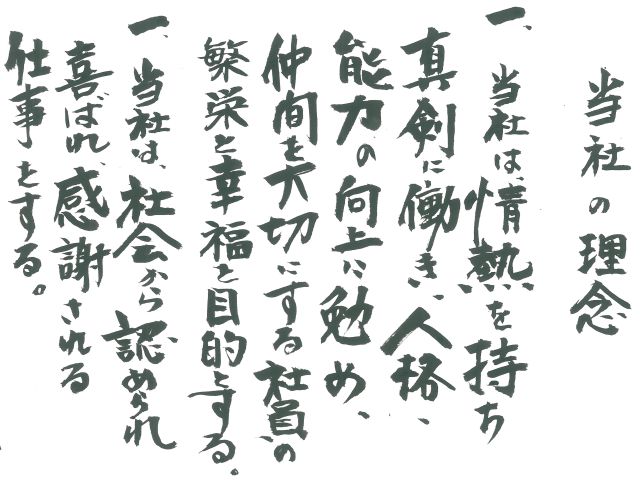 当社の理念
一、当社は、情熱を持ち
真剣に働き、人格、
能力の向上に勉め、
仲間を大切にする社員の
繁栄と幸福を目的とする。
一、当社は、社会から認められ
喜ばれ、感謝される
仕事をする。